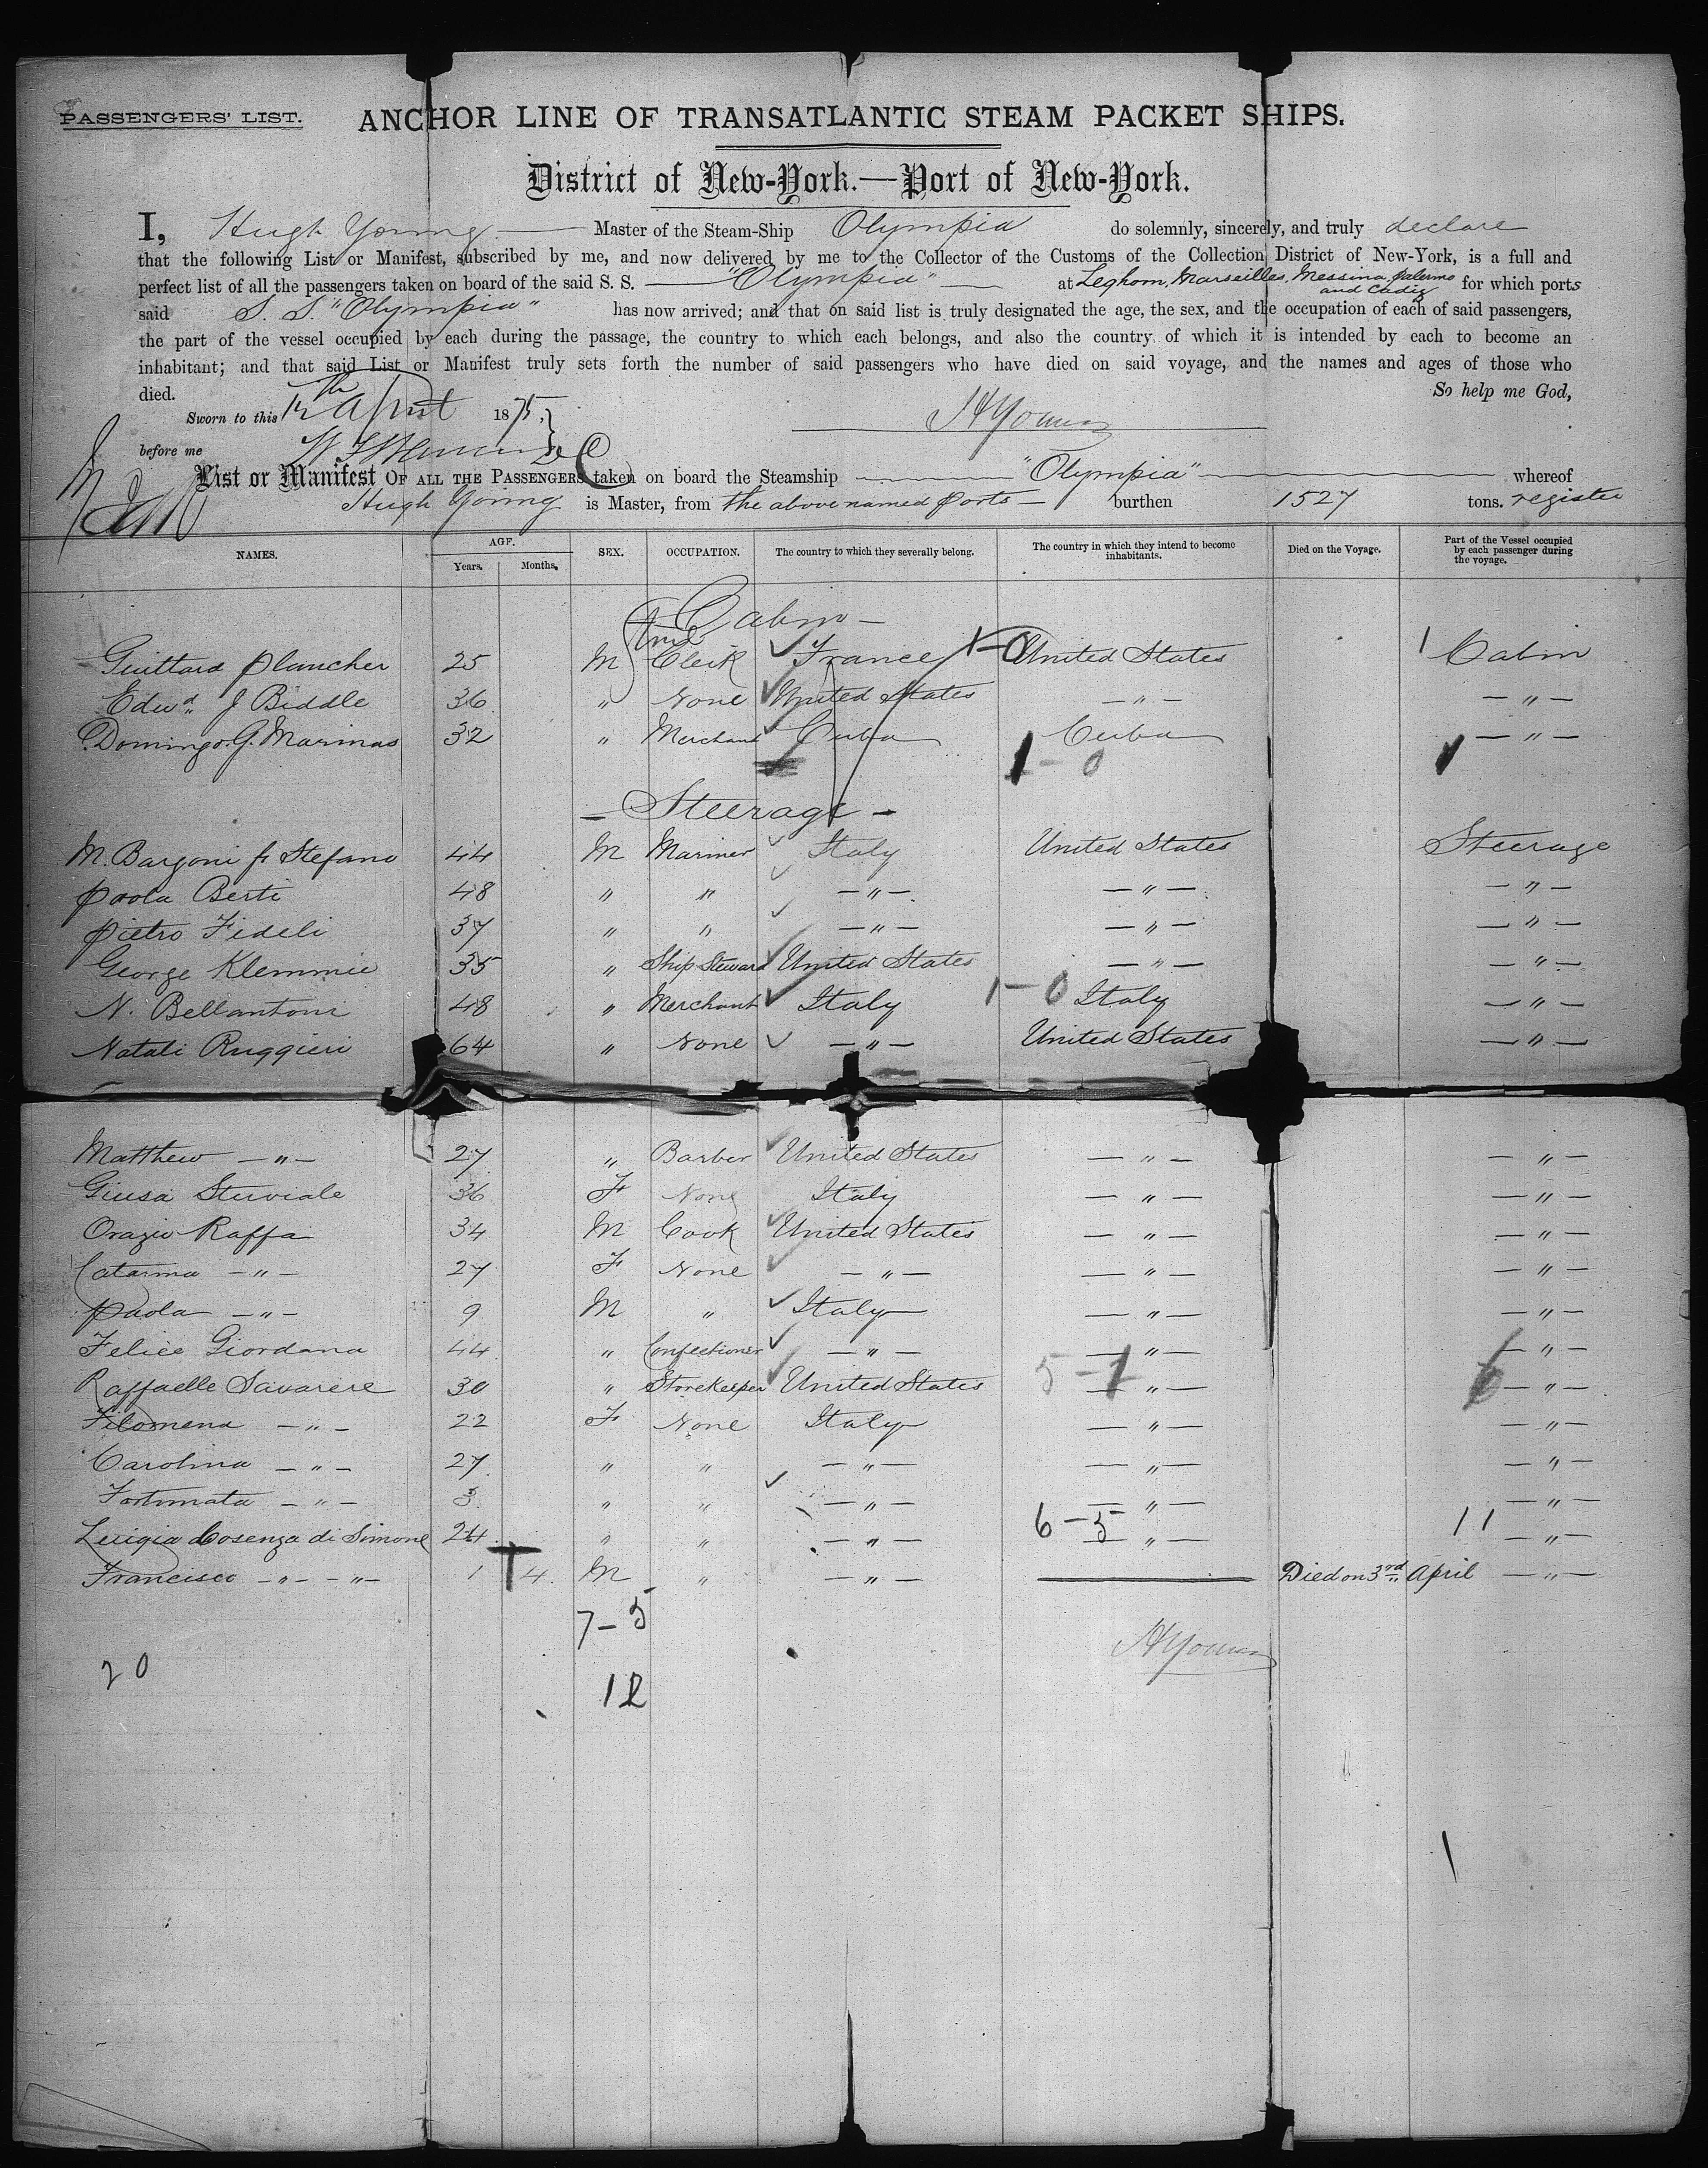 PASSENGERS' LIST. ANCHOR LINE OF TRANSATLANTIC STEAM PACKET SHIPS.
District of New-York.—Port of New-York.
I, Hugh Young Master of the Steam-Ship Olympia do solemnly, sincerely, and truly declare
that the following List or Manifest, subscribed by me, and now delivered by me to the Collector of the Customs of the Collection District of New-York, is a full and
perfect list of all the passengers taken on board of the said S. S. "Olympia" at Leghorn, Marseilles, Messina, Palermo and Cadiz for which ports
said S. S. "Olympia" has now arrived; and that on said list is truly designated the age, the sex, and the occupation of each of said passengers,
the part of the vessel occupied by each during the passage, the country to which each belongs, and also the country of which it is intended by each to become an
inhabitant; and that said List or Manifest truly sets forth the number of said passengers who have died on said voyage, and the names and ages of those who
died. So help me God,
Sworn to this 12th April 1875. H Young
before me
List or Manifest OF ALL THE PASSENGERS taken on board the Steamship "Olympia" whereof
Hugh Young is Master, from the above named Ports — burthen 1527 tons. register
NAMES. AGE. Years. Months. SEX. OCCUPATION. The country to which they severally belong. The country in which they intend to become inhabitants. Died on the Voyage. Part of the Vessel occupied by each passenger during the voyage.
Cabin —
Guittard Plancher 25 M Clerk France 1-0 United States 1 Cabin
Edwd. J Biddle 36 " None United States — " — — " —
Domingo. G. Marinas 32 " Merchant Cuba Cuba — " —
1 - 0
— Steerage —
M. Bargoni fr Stefano 44 M Mariner Italy United States Steerage
Paola Berti 48 " " — " — — " — — " —
Pietro Fideli 37 " " — " — — " — — " —
George Klemmie 35 " Ship Steward United States — " — — " —
N. Bellantoni 48 " Merchant Italy 1-0 Italy — " —
Natali Ruggieri 64 " None — " — United States — " —
Matthew — " — 27 " Barber United States — " — — " —
Giusa Stuviale 36 F None Italy — " — — " —
Orazio Raffa 34 M Cook United States — " — — " —
Catarina — " — 27 F None — " — — " — — " —
Paola — " — 9 M " Italy — " — — " —
Felice Giordana 44 " Confectioner — " — — " — — " —
Raffaelle Savarere 30 " Storekeeper United States 5-1 — " — 6 — " —
Filomena — " — 22 F None Italy — " — — " —
Carolina — " — 27 " " — " — — " — — " —
Fortunata — " — 3 " " — " — — " — — " —
Luigia Cosenza di Simone 24 " " — " — 6-5 — " — 11 — " —
Francisco — " — " — 1 4 M " — " — Died on 3rd April — " —
7-5
H Young
20
12
1